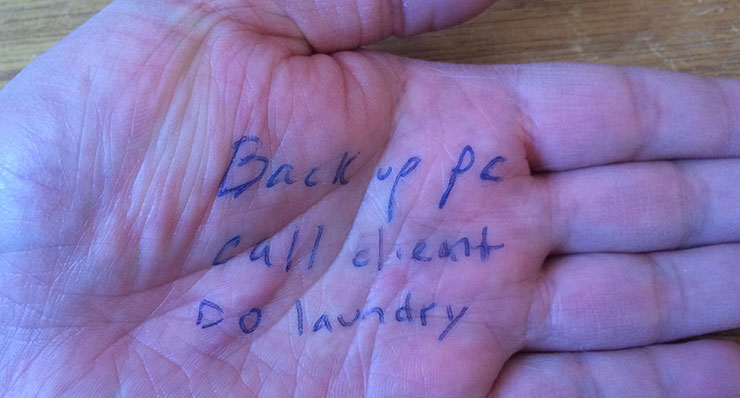 Back up pc
call client
Do laundry